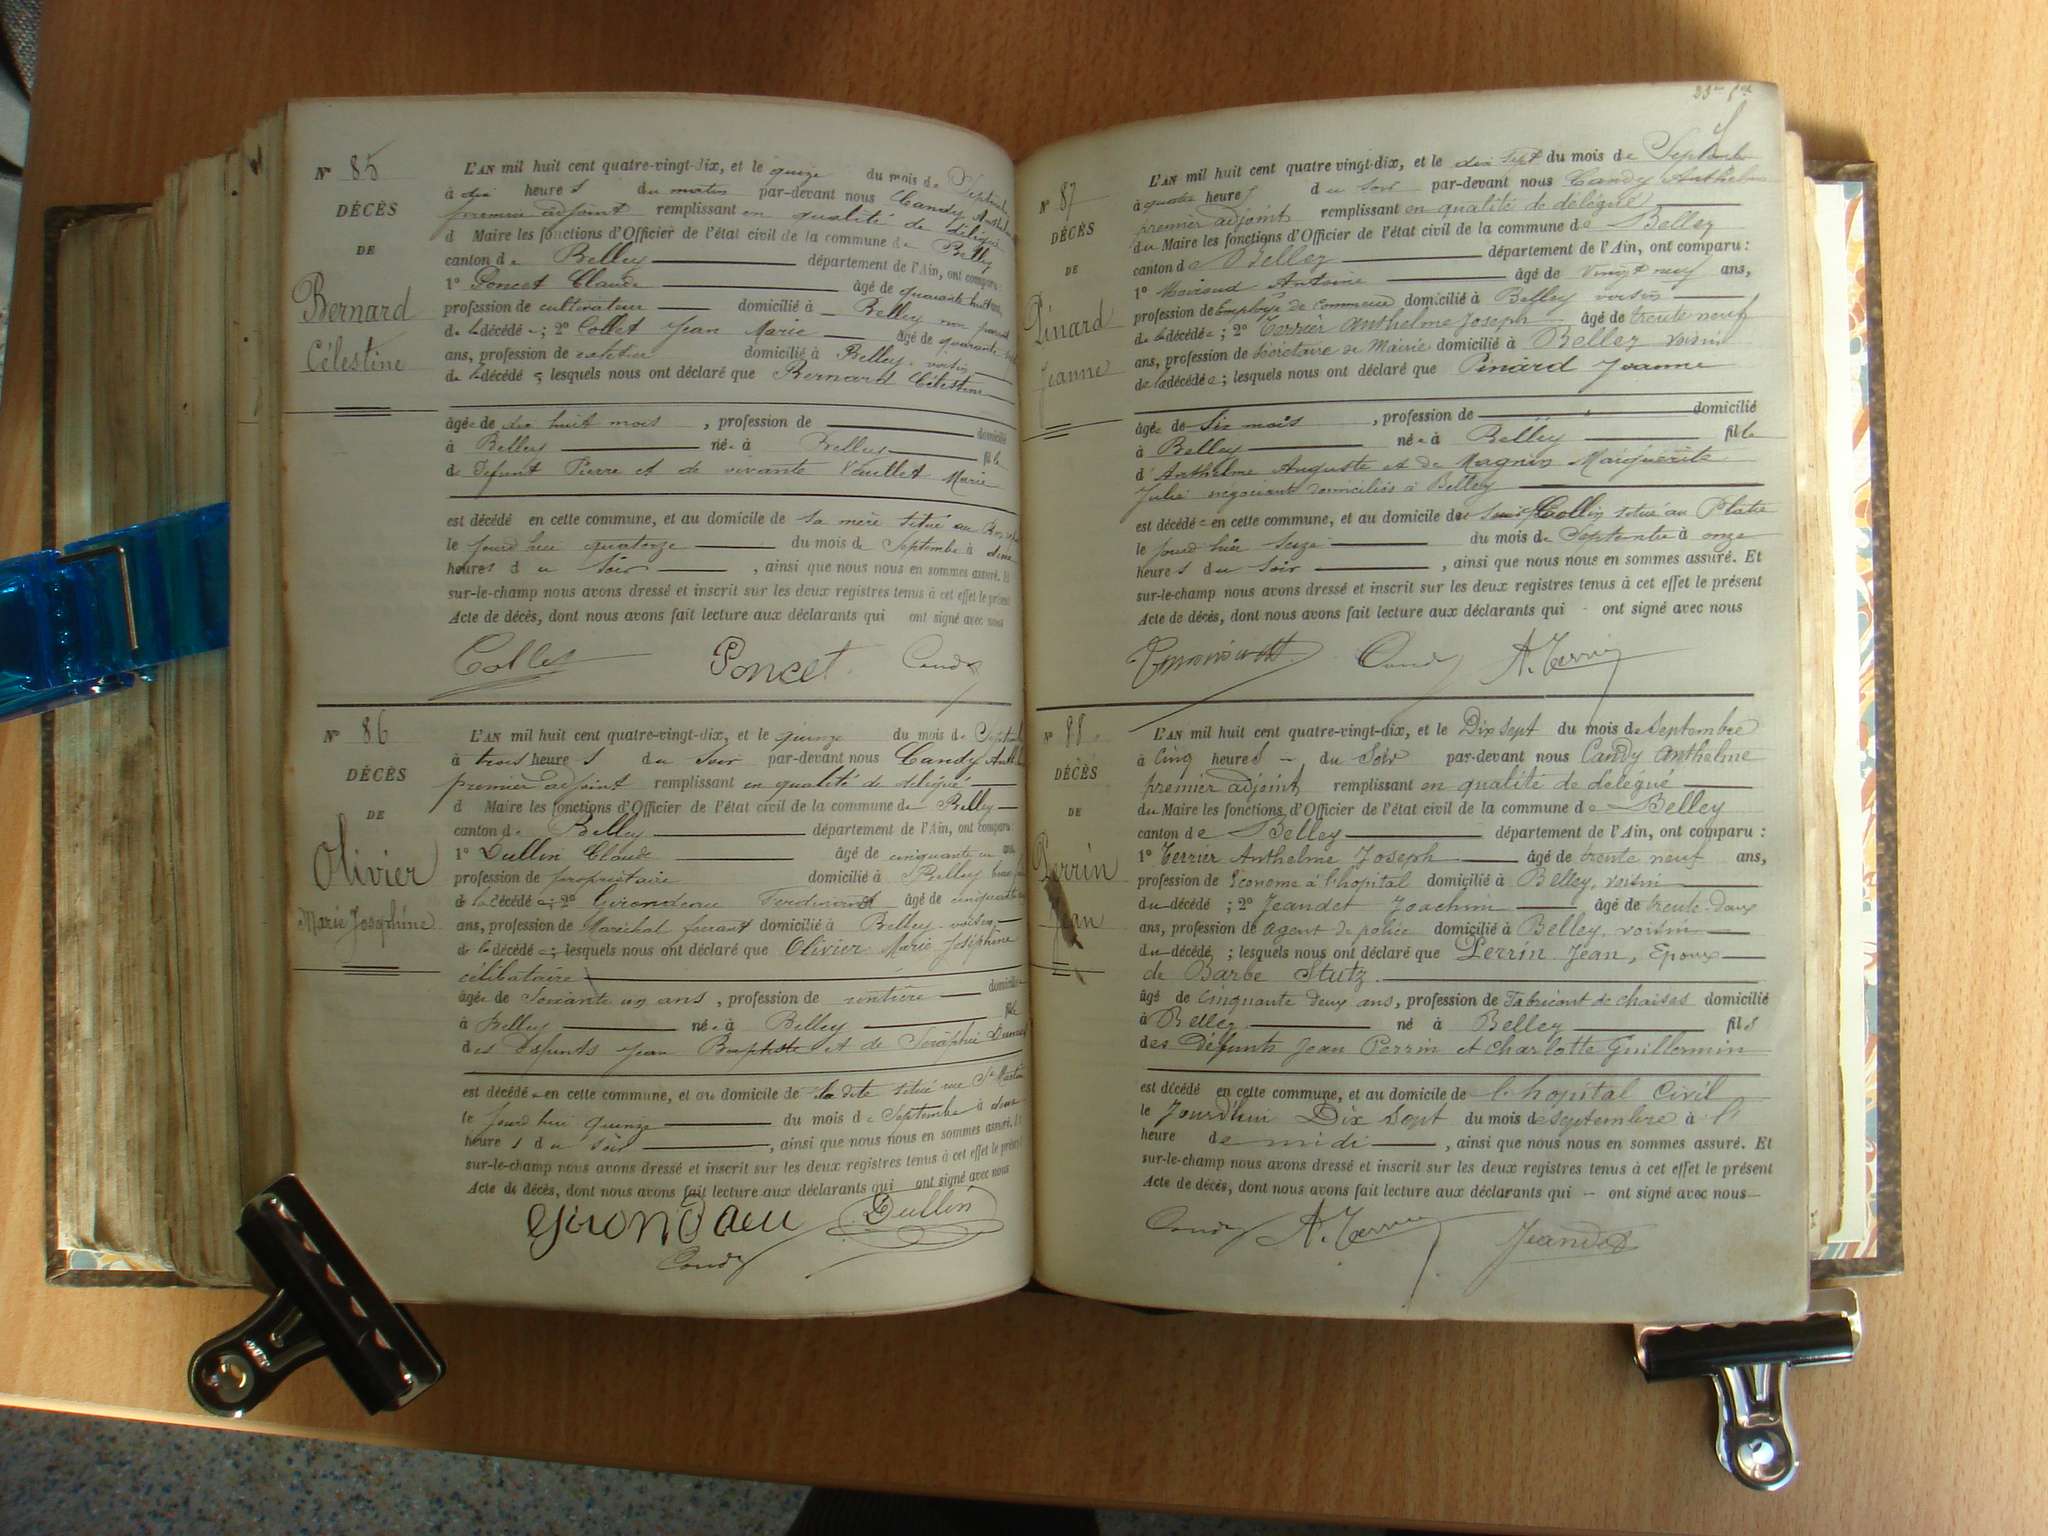 N° 85
DÉCÈS
DE
Bernard
Célestine
L'AN mil huit cent quatre-vingt-dix, et le quinze du mois de Septembre
à dix heures du matin par-devant nous Candy Anthelme
premier adjoint remplissant en qualité de délégué
d Maire les fonctions d'Officier de l'état civil de la commune de Belley
canton de Belley département de l'Ain, ont comparu :
1° Poncet Claude âgé de quarante huit ans,
profession de cultivateur domicilié à Belley non parent
de la décédée ; 2° Collet Jean Marie âgé de quarante
ans, profession de cafetier domicilié à Belley, voisin
de la décédée ; lesquels nous ont déclaré que Bernard Célestine
âgée de dix huit mois, profession de domicilié
à Belley née à Belley fille
de Défunt Pierre et de vivante Vuillet Marie
est décédée en cette commune, et au domicile de sa mère situé au
le jourd'hui quatorze du mois de Septembre à
heures du soir, ainsi que nous nous en sommes assuré. Et
sur-le-champ nous avons dressé et inscrit sur les deux registres tenus à cet effet le présent
Acte de décès, dont nous avons fait lecture aux déclarants qui ont signé avec nous
Collet Poncet Candy
N° 86
DÉCÈS
DE
Olivier
Marie Joséphine
L'AN mil huit cent quatre-vingt-dix, et le quinze du mois de Septembre
à trois heures du soir par-devant nous Candy Anthelme
premier adjoint remplissant en qualité de délégué
d Maire les fonctions d'Officier de l'état civil de la commune de Belley
canton de Belley département de l'Ain, ont comparu :
1° Dullin Claude âgé de cinquante un ans,
profession de propriétaire domicilié à Belley
de la décédée ; 2° Girondeau Ferdinand âgé de cinquante
ans, profession de Maréchal ferrant domicilié à Belley, voisin,
de la décédée ; lesquels nous ont déclaré que Olivier Marie Joséphine
célibataire
âgée de Soixante un ans, profession de rentière domiciliée
à Belley née à Belley fille
des défunts Jean Baptiste et de Séraphie
est décédée en cette commune, et au domicile de la dite situé rue St Martin
le jourd'hui quinze du mois de Septembre à deux
heures du soir, ainsi que nous nous en sommes assuré. Et
sur-le-champ nous avons dressé et inscrit sur les deux registres tenus à cet effet le présent
Acte de décès, dont nous avons fait lecture aux déclarants qui ont signé avec nous
Girondeau Dullin
Candy
N° 87
DÉCÈS
DE
Pinard
Jeanne
L'AN mil huit cent quatre vingt-dix, et le dix sept du mois de Septembre
à quatre heures du soir par-devant nous Candy Anthelme
premier adjoint remplissant en qualité de délégué
du Maire les fonctions d'Officier de l'état civil de la commune de Belley
canton de Belley département de l'Ain, ont comparu :
1° Antoine âgé de vingt neuf ans,
profession de Employé de commerce domicilié à Belley voisin
de la décédée ; 2° Terrier Anthelme Joseph âgé de trente neuf
ans, profession de Secrétaire de Mairie domicilié à Belley voisin
de la décédée ; lesquels nous ont déclaré que Pinard Jeanne
âgée de Six mois, profession de domicilié
à Belley née à Belley fille
d'Anthelme Auguste et de Magnin Marguerite
Julie négociants domiciliés à Belley
est décédée en cette commune, et au domicile de Collin situé au Platre
le jourd'hui seize du mois de Septembre à onze
heures du soir, ainsi que nous nous en sommes assuré. Et
sur-le-champ nous avons dressé et inscrit sur les deux registres tenus à cet effet le présent
Acte de décès, dont nous avons fait lecture aux déclarants qui - ont signé avec nous
Candy A. Terrier
N° 88
DÉCÈS
DE
Perrin
Jean
L'AN mil huit cent quatre-vingt-dix, et le Dix sept du mois de septembre
à Cinq heures du Soir par-devant nous Candy Anthelme
premier adjoint remplissant en qualité de délégué
du Maire les fonctions d'Officier de l'état civil de la commune de Belley
canton de Belley département de l'Ain, ont comparu :
1° Terrier Anthelme Joseph âgé de trente neuf ans,
profession de Econome à l'hopital domicilié à Belley, voisin
du décédé ; 2° Jeandet Joachim âgé de trente-deux
ans, profession de agent de police domicilié à Belley, voisin
du décédé ; lesquels nous ont déclaré que Perrin Jean, Epoux
de Barbe Stutz
âgé de Cinquante deux ans, profession de Fabricant de chaises domicilié
à Belley né à Belley fils
des Défunts Jean Perrin et Charlotte Guillermin
est décédé en cette commune, et au domicile de l'hopital Civil
le Jourd'hui Dix sept du mois de septembre à l'
heure de midi, ainsi que nous nous en sommes assuré. Et
sur-le-champ nous avons dressé et inscrit sur les deux registres tenus à cet effet le présent
Acte de décès, dont nous avons fait lecture aux déclarants qui - ont signé avec nous
Candy A. Terrier Jeandet